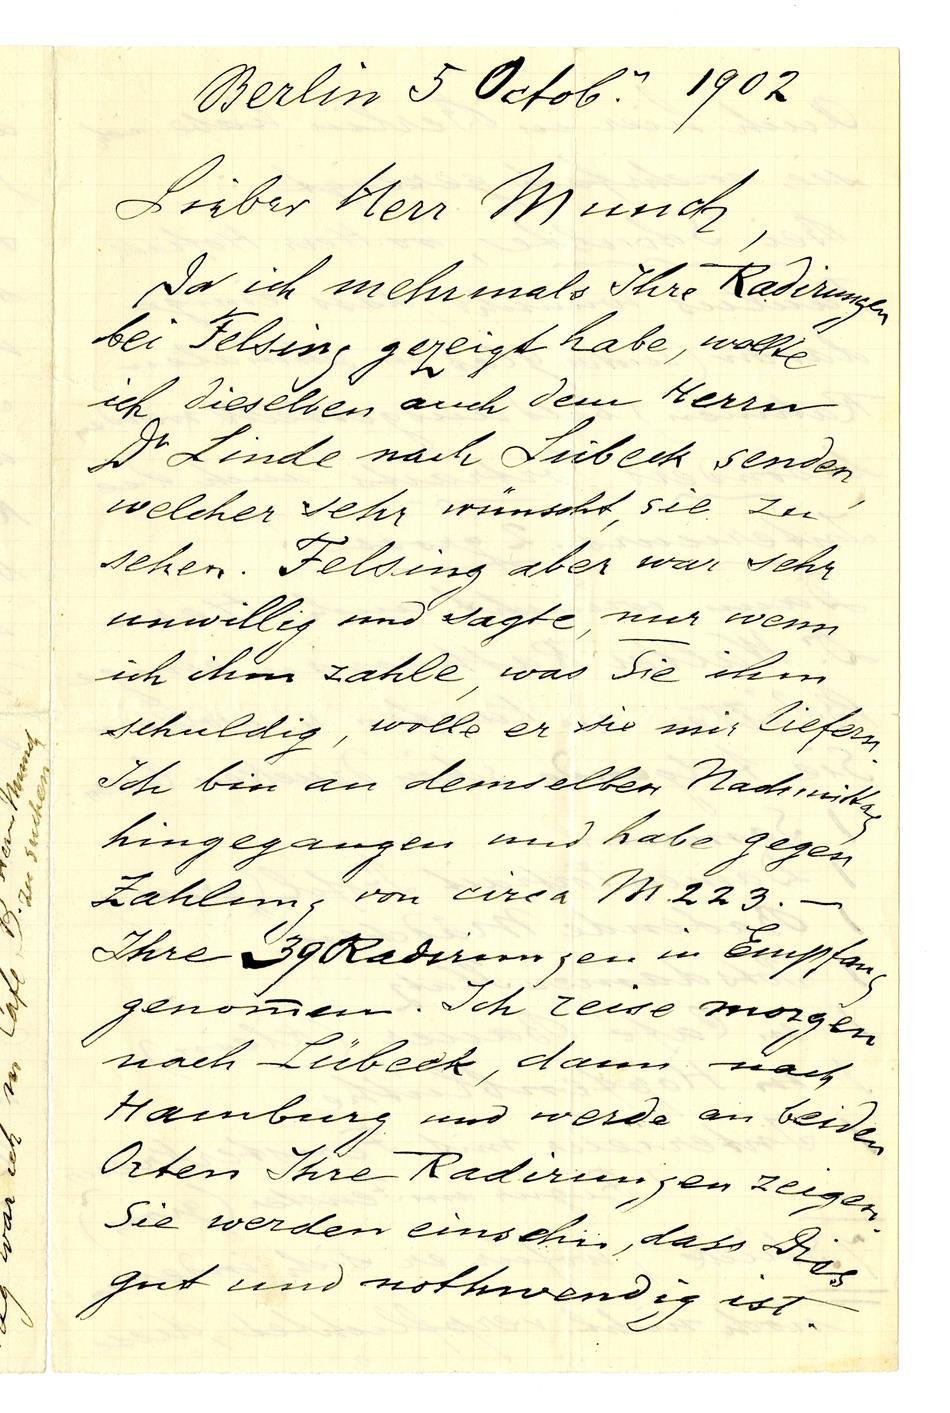 Berlin 5 Octobr. 1902
Lieber Herr Munch,
Da ich mehrmals Ihre Radirungen
bei Felsing gezeigt habe, wollte
ich dieselben auch dem Herrn
Dr Linde nach Lübeck senden,
welcher sehr wünscht, sie zu
sehen. Felsing aber war sehr
unwillig und sagte, nur wenn
ich ihm zahle, was Sie ihm
schuldig, wolle er sie mir liefern.
Ich bin an demselben Nachmittag
hingegangen und habe gegen
Zahlung von circa M 223. —
Ihre 39 Radirungen in Empfang
genom̅en. Ich reise morgen
nach Lübeck, dann nach
Hamburg und werde an beiden
Orten Ihre Radirungen zeigen.
Sie werden einsehn, dass Dies
gut und nothwendig ist.
war ich im Café B. Herrn Munch
zu suchen